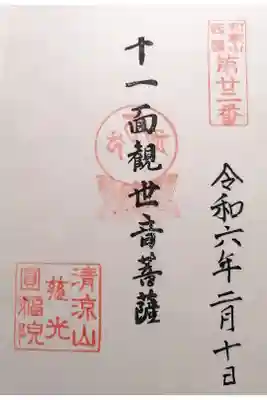 令和六年二月十日
十一面観世音菩薩
清涼山
慈光
圓福院